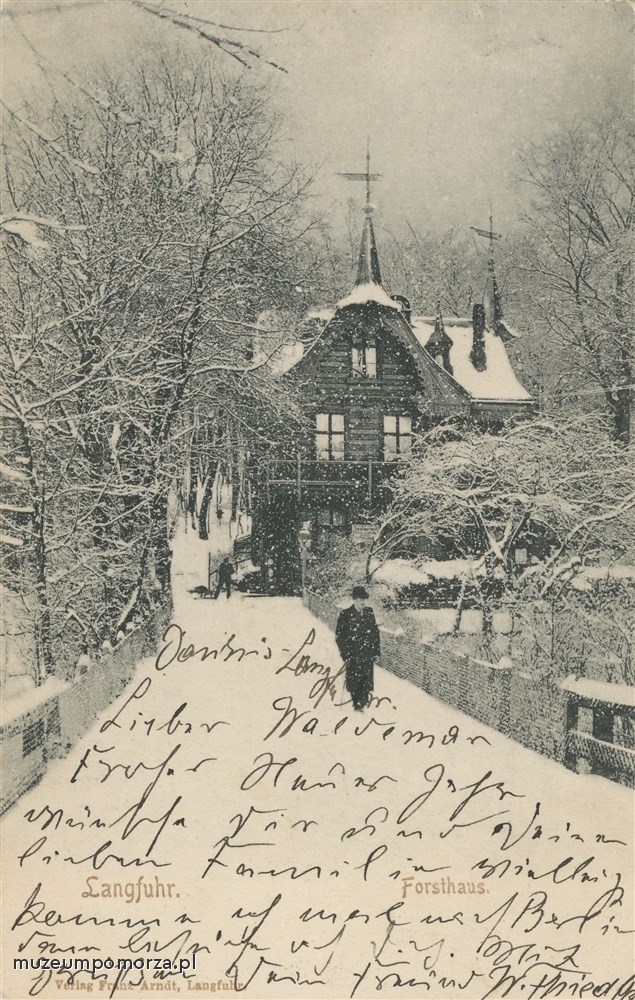 Langfuhr.
Lieber Waldemar
Frohes Neues Jahr
wünsche Dir und Deiner
lieben Familie
Langfuhr. Forsthaus.
komme ich mal nach Berlin
dann besuche ich Dich. Mit
Dein Freund W.
muzeumpomorza.pl
Verlag Franz Arndt, Langfuhr.